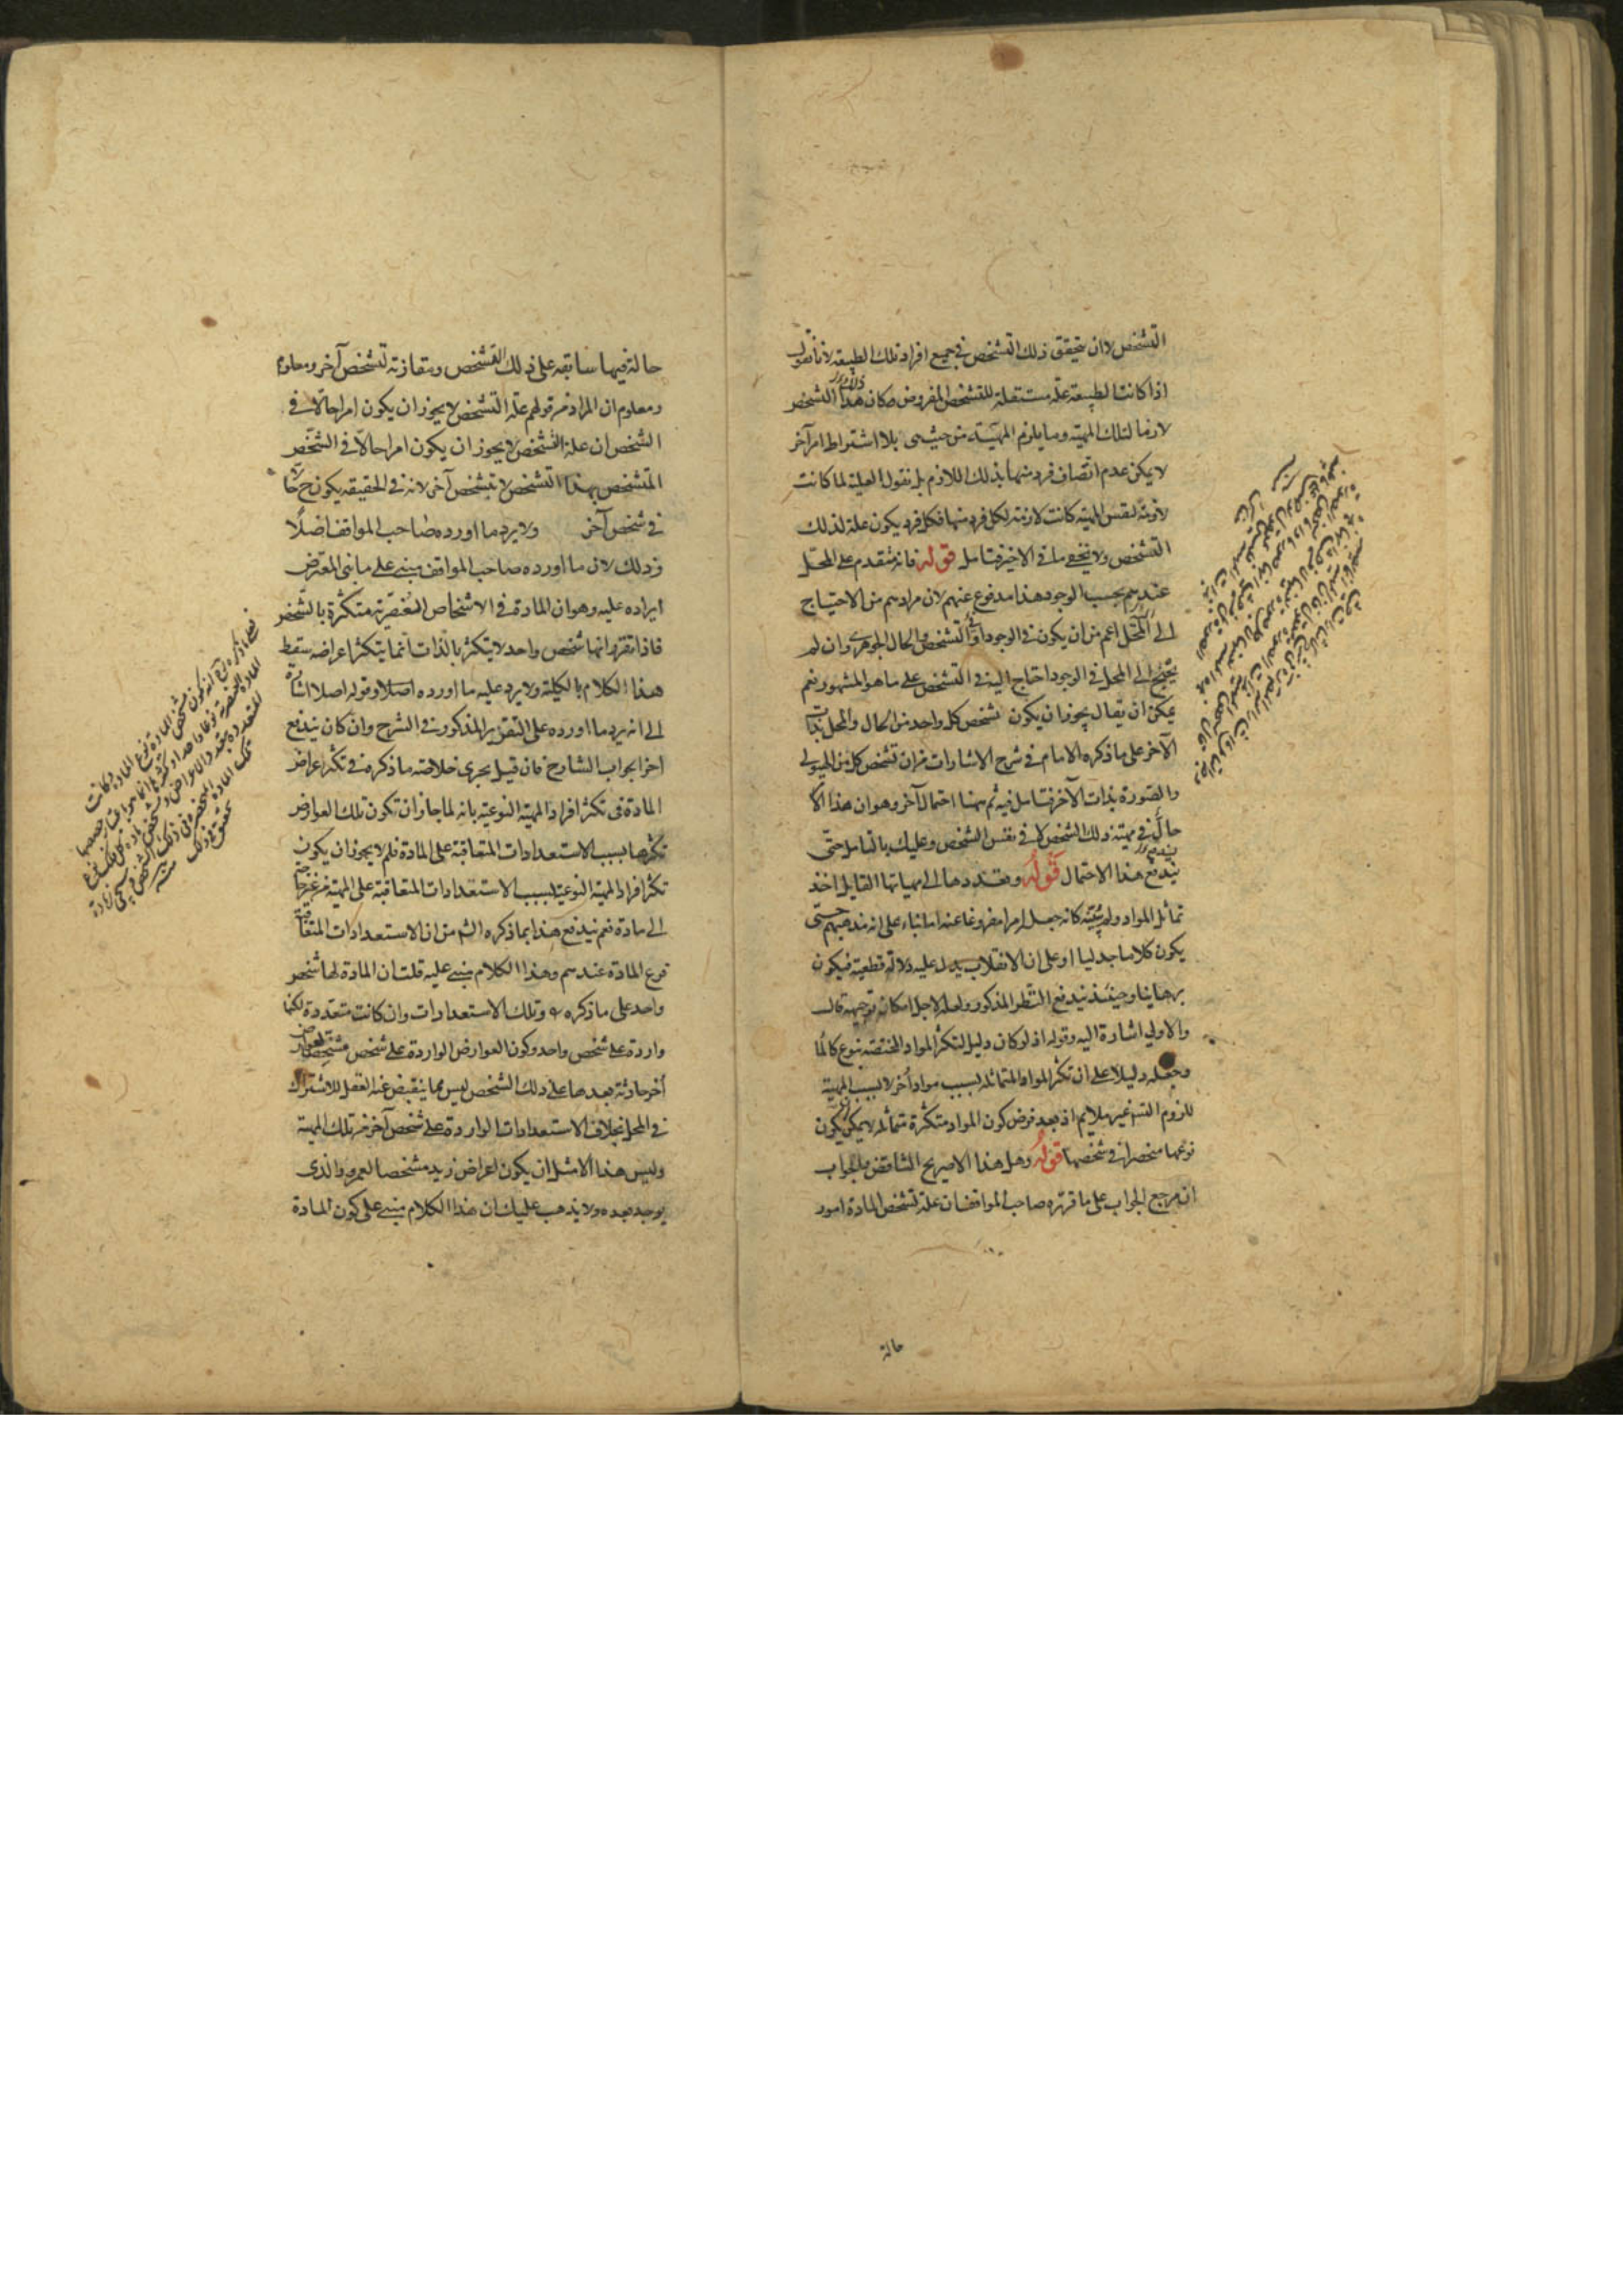 التشخص لا ان يتحقق ذلك التشخص في جميع افراد تلك الطبيعة لانا نقول
اذا كانت الطبيعة علة مستقلة للتشخص المفروض فكان هذا التشخص
لازما لتلك الماهية وما يلزم الماهية من حيث هي بلا اشتراط امر آخر
لا يمكن عدم اتصاف فرد منها بذلك اللازم بل نقول العلية لما كانت
لازمة لنفس المهية كانت لازمة لكل فرد منها فكل فرد يكون علة لذلك
التشخص ولا يخفى ما في الاخير فتامل قوله فانه متقدم على المحل
عندهم بحسب الوجود هذا مدفوع عنهم لان مرادهم من الاحتياج
الى المحل اعم من ان يكون في الوجود او التشخص والحال الجوهري وان لم
يحتج الى المحل في الوجود احتاج اليه في التشخص على ما هو المشهور نعم
يمكن ان يقال يجوز ان يكون تشخص كل واحد من الحال والمحل بذات
الآخر على ما ذكره الامام في شرح الاشارات من ان تشخص كل من الهيولى
والصورة بذات الآخر فتامل فيه ثم ههنا احتمال آخر وهو ان هذا
حال في مهية ذلك الشخص لا في نفس الشخص وعليك بالتامل حتى
يندفع هذا الاحتمال قوله وتعددها الى مهياتها القابل اخذ
تماثل المواد ولم يثبته كانه جعل امرا مفروغا عنه اما بناء على انه مذهبهم حتى
يكون كلاما جدليا او على ان الانقلاب يدل عليه دلالة قطعية فيكون
برهانيا وحينئذ يندفع النظر المذكور ولعله لاجل امكان توجيهه قال
والاولى اشارة اليه وقوله اذ لو كان دليل لتكثر المواد المختصة بنوع
وجعله دليلا على ان تكثر المواد المتماثلة بسبب مواد أخر لا بسبب المهية
للزوم التسـ غير ملايم اذ بعد فرض كون المواد متكثرة متماثلة لا يمكن ان يكون
نوعها منحصرا في شخصها قوله وهل هذا الا صريح التناقض
ان مرجع الجواب على ما قرره صاحب المواقف ان علة تشخص المادة امور
حالة
حالة فيها سابقه على ذلك التشخص ومقارنة لتشخص آخر ومعلوم
ومعلوم ان المراد من قولهم علة التشخص لا يجوز ان يكون امرا حالا في
الشخص ان علة التشخص لا يجوز ان يكون امرا حالا في الشخص
المتشخص بهذا التشخص لا بتشخص آخر لانه في الحقيقه يكون ح حالا
في شخص آخر ولا يرد ما اورده صاحب المواقف اصلا
وذلك لان ما اورده صاحب المواقف مبني على ما بنى المعترض
ايراده عليه وهو ان المادة في الاشخاص العنصرية متكثرة بالشخص
فاذا تقرر انها شخص واحد لا يتكثر بالذات انما يتكثر اعراضه سقط
هذا الكلام بالكلية ولا يرد عليه ما اورده اصلا وقوله اصلا اشارة
الى انه يرد ما اورده على التقرير المذكور في الشرح وان كان يندفع
اخرا بجواب الشارح فان قيل يجرى خلاصة ما ذكره في تكثر اعراض
المادة في تكثر افراد المهية النوعية بانه لما جاز ان تكون تلك العوارض
تكثرها بسبب الاستعدادات المتعاقبة على المادة فلم لا يجوز ان يكون
تكثر افراد المهية النوعية بسبب الاستعدادات المتعاقبة على المهية من غير حاجة
الى مادة نعم يندفع هذا بما ذكره الش من ان الاستعدادات المتعاقبة
فرع المادة عندهم وهذا الكلام مبني عليه قلت ان المادة لها شخص
واحد على ما ذكره وتلك الاستعدادات وان كانت متعددة لكنها
واردة على شخص واحد وكون العوارض الواردة على شخص مشخصا لعوارض
أخر حادثة بعدها على ذلك الشخص ليس مما ينقبض عنه العقل للاشتراك
في المحل بخلاف الاستعدادات الواردة على شخص آخر من تلك المهية
وليس هذا الا مثل ان يكون اعراض زيد مشخصا لعمرو الذى
يوجد بعده ولا يذهب عليك ان هذا الكلام مبني على كون المادة